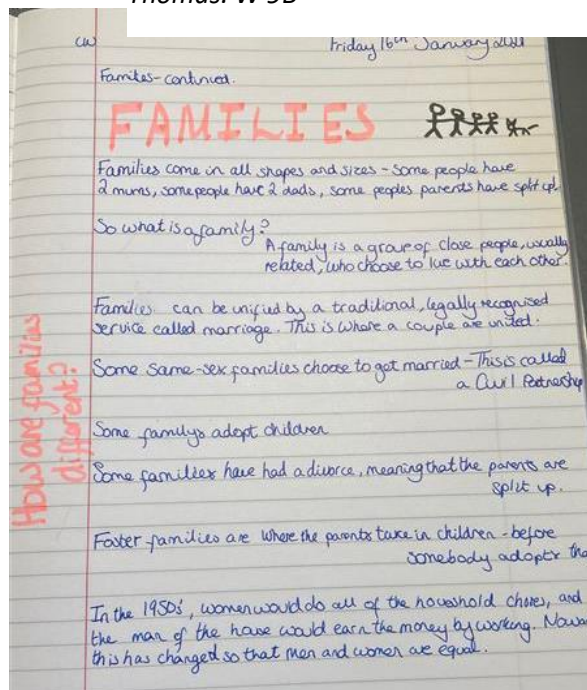 Thomas. W 9B
CW
Friday 16th January
Familes-continued.
FAMILIES
Families come in all shapes and sizes - some people have
2 mums, some people have 2 dads, some peoples parents have split up.
So what is a family?
A family is a groupe of close people, usually
related, who choose to live with each other.
Families can be unified by a traditional, legally recognised
service called marriage. This is where a couple are united.
Some same-sex families choose to get married - This is called
a Civil Partnership
Some familys adopt children
Some families have had a divorce, meaning that the parents are
split up.
Foster families are where the parents take in children - before
somebody adopts
In the 1950s', women would do all of the household chores, and
the man of the house would earn the money by working.
this has changed so that men and women are equal.
How are families
different?